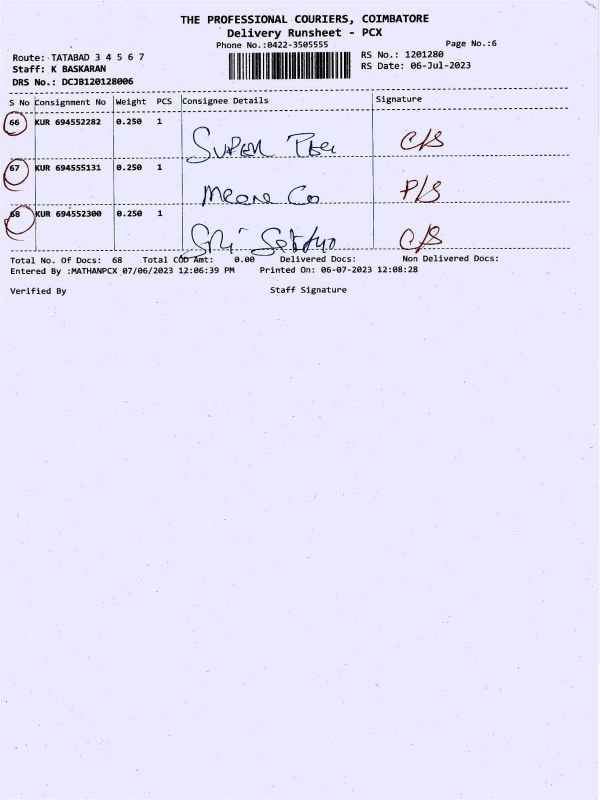 THE PROFESSIONAL COURIERS, COIMBATORE
Delivery Runsheet - PCX
Phone No.:0422-3505555 Page No.:6
Route: TATABAD 3 4 5 6 7 RS No.: 1201280
Staff: K BASKARAN RS Date: 06-Jul-2023
DRS No.: DCJB120128006
S No Consignment No Weight PCS Consignee Details Signature
66 KUR 694552282 0.250 1
SUPER C/S
67 KUR 694555131 0.250 1
Co P/S
68 KUR 694552300 0.250 1
Sri C/S
Total No. Of Docs: 68 Total COD Amt: 0.00 Delivered Docs: Non Delivered Docs:
Entered By :MATHANPCX 07/06/2023 12:06:39 PM Printed On: 06-07-2023 12:08:28
Verified By Staff Signature